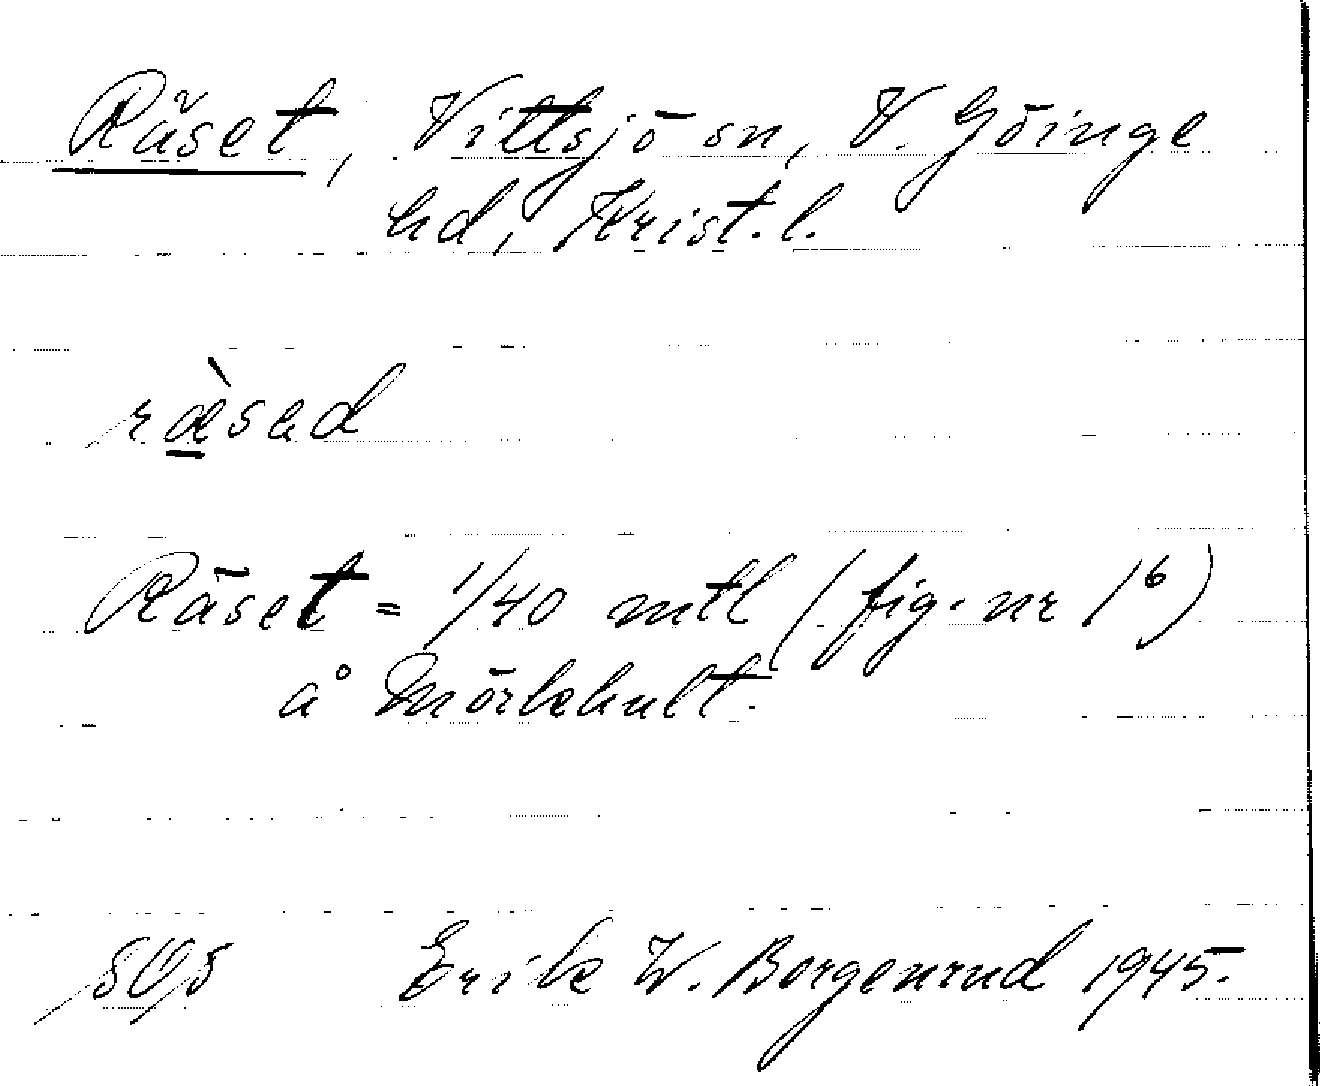 Räset, Vittsjö sn, V. Göinge
hd, Krist. l.
ræ̀sed
Räset = 1/40 mtl (fig. nr 1⁶)
å Mörkhult.
Erik W. Borgenrud 1945.